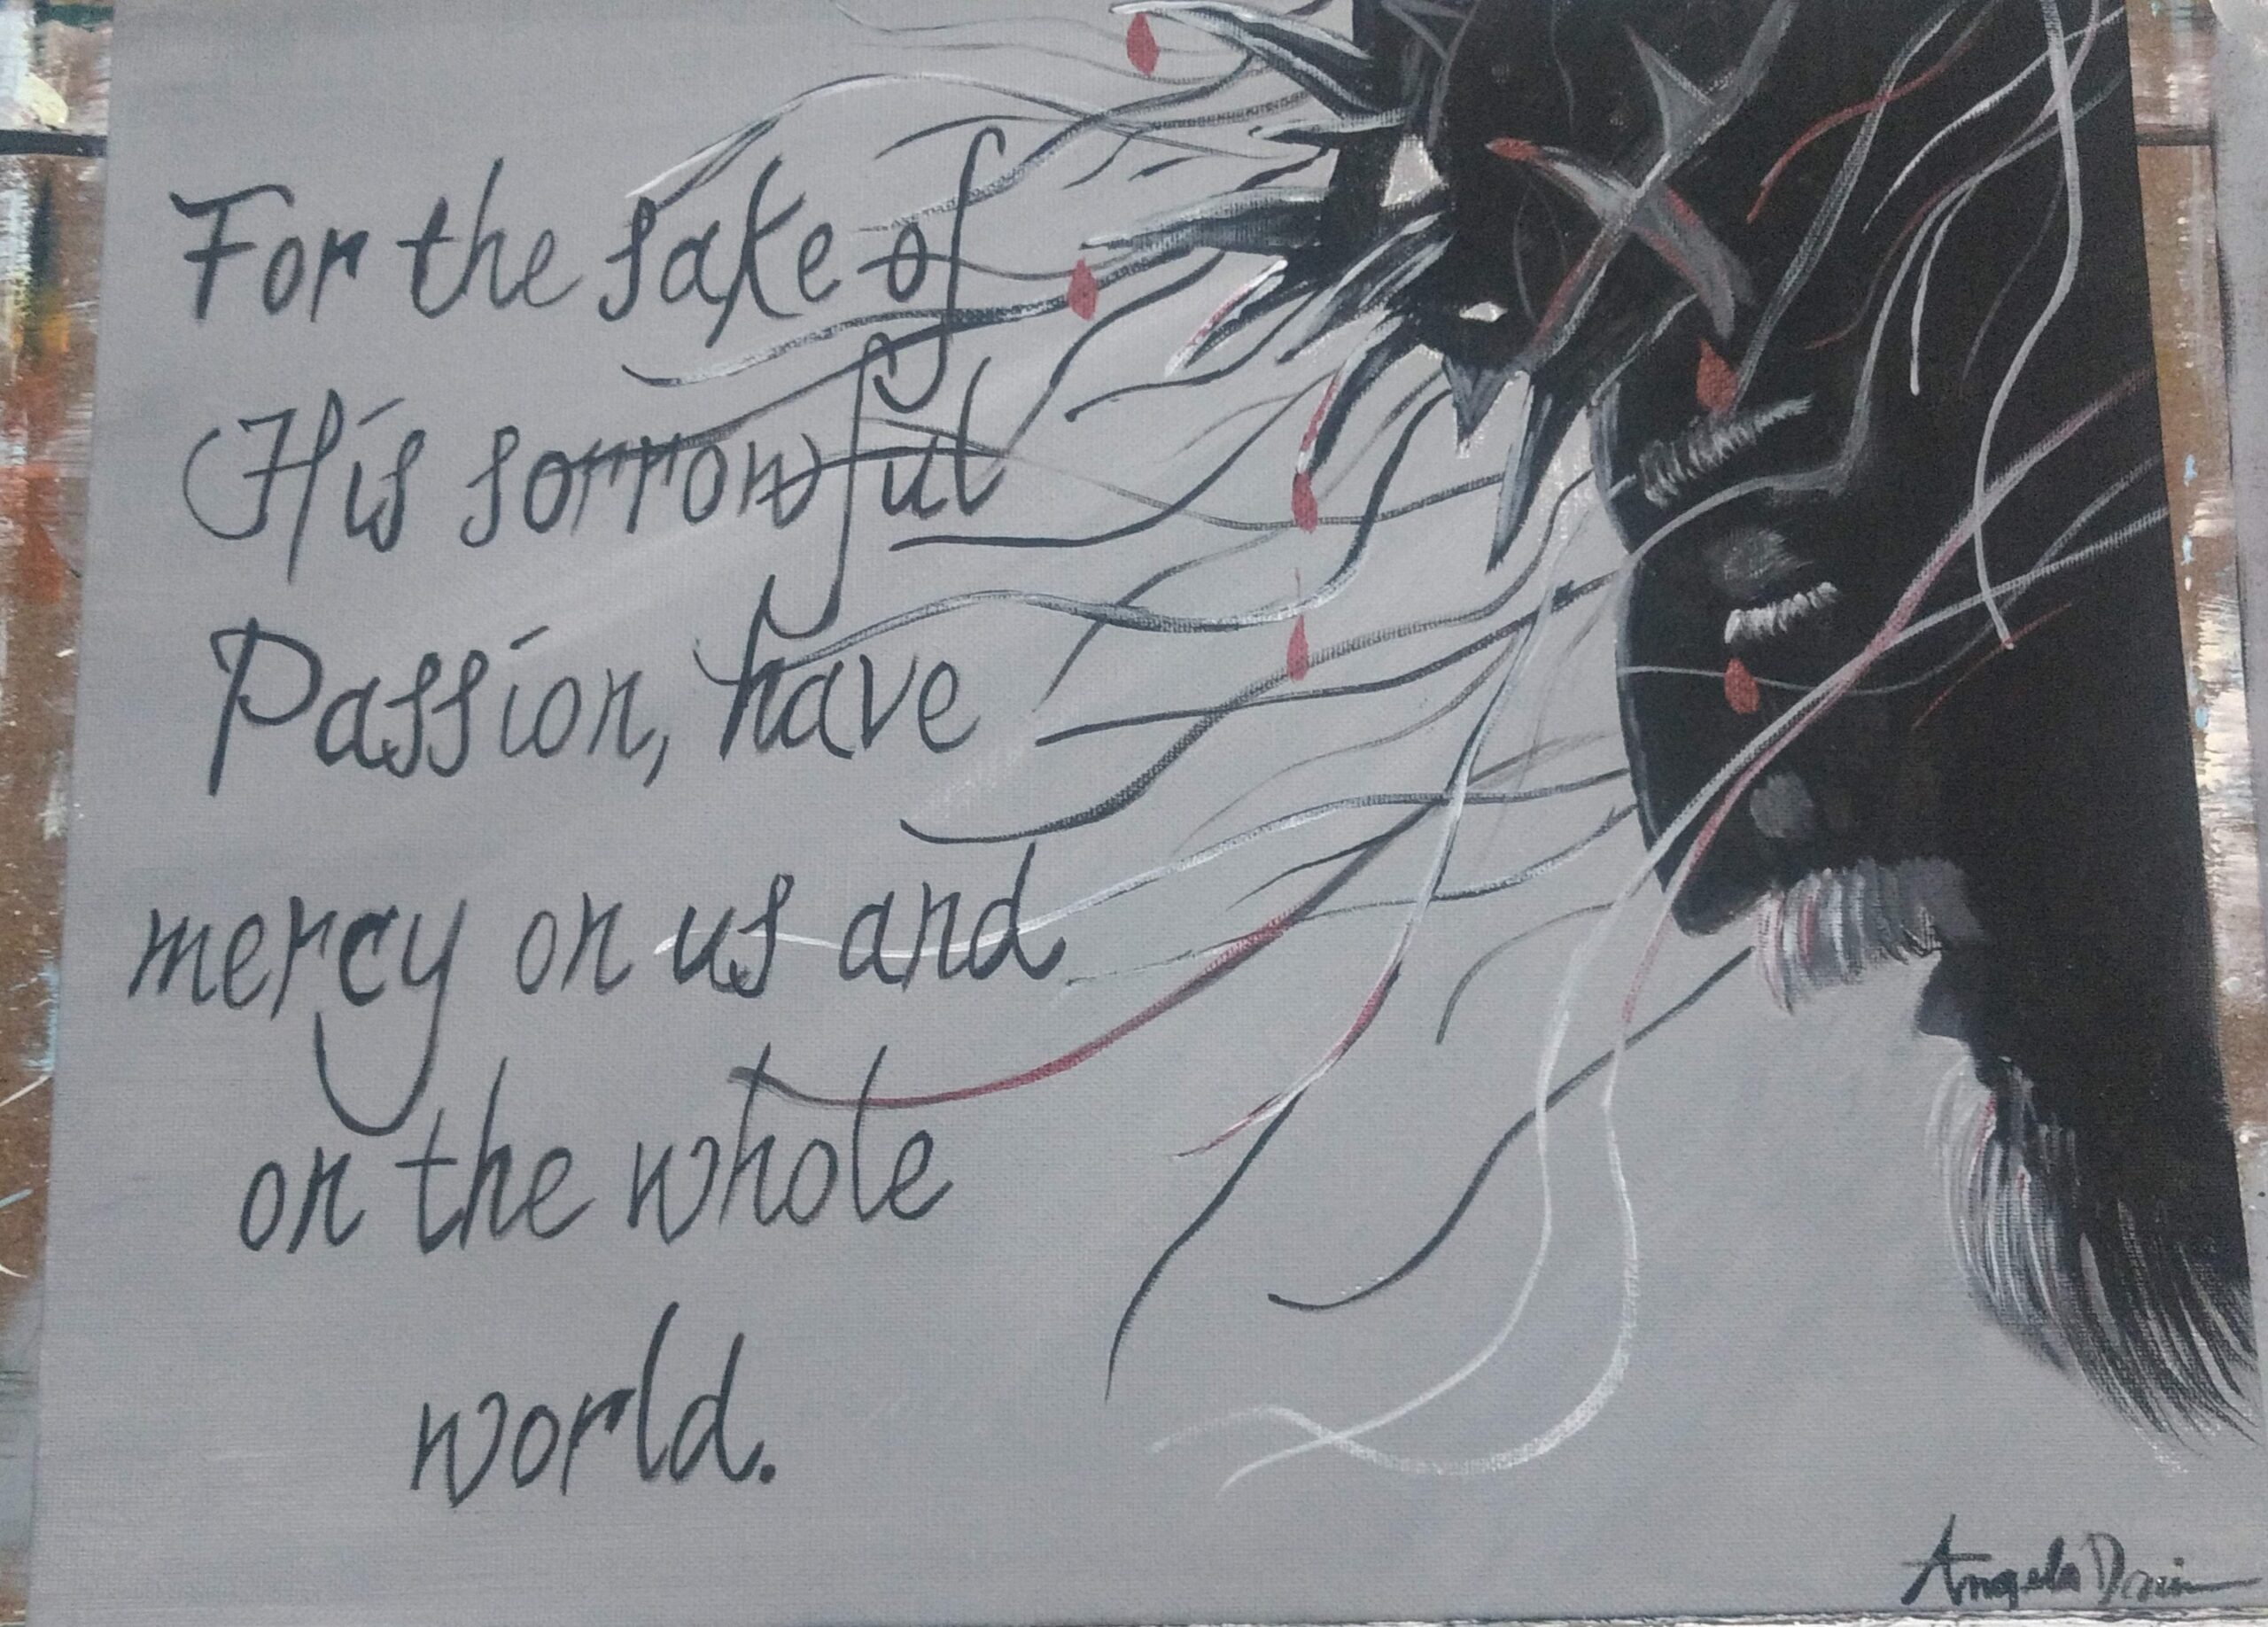 For the sake of
His sorrowful
Passion, have
mercy on us and
on the whole
world.
Angela